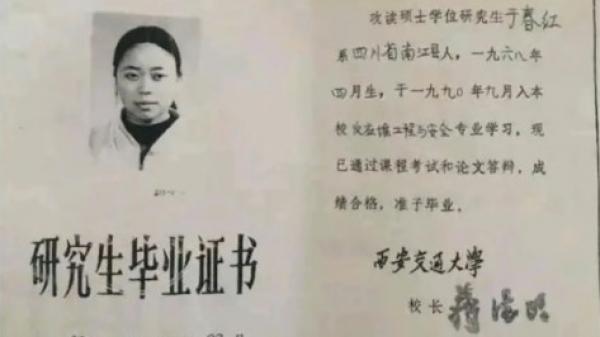 研究生毕业证书
攻读硕士学位研究生于春红
系四川省南江县人，一九六八年
四月生，于一九九〇年九月入本
校反应堆工程与安全专业学习，现
已通过课程考试和论文答辩，成
绩合格，准予毕业。
西安交通大學
校长 蒋德明